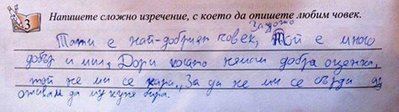 3 Напишете сложно изречение, с което да опишете любим човек.
Защото
Тати е най-добрият човек, Той е много
добър и мил, Дори когато нямам добра оценка,
той не ми се кара, За да не ми се сърди аз
отивам да му купя бира.